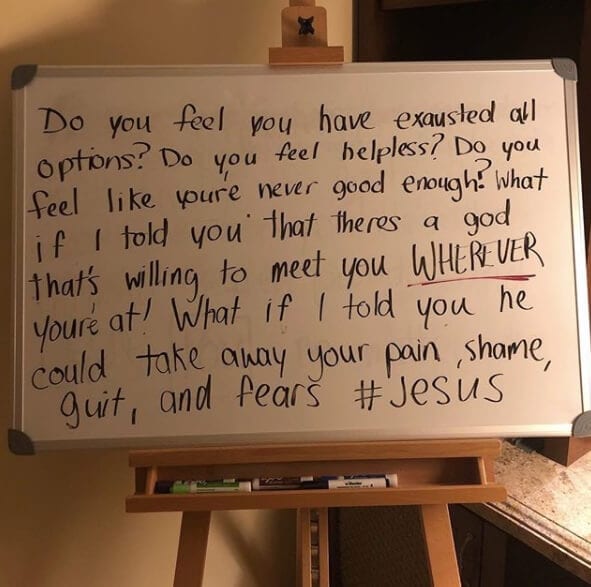 Do you feel you have exausted all
options? Do you feel helpless? Do you
feel like you're never good enough? What
if I told you that theres a god
that's willing to meet you WHEREVER
you're at! What if I told you he
could take away your pain, shame,
guit, and fears #Jesus